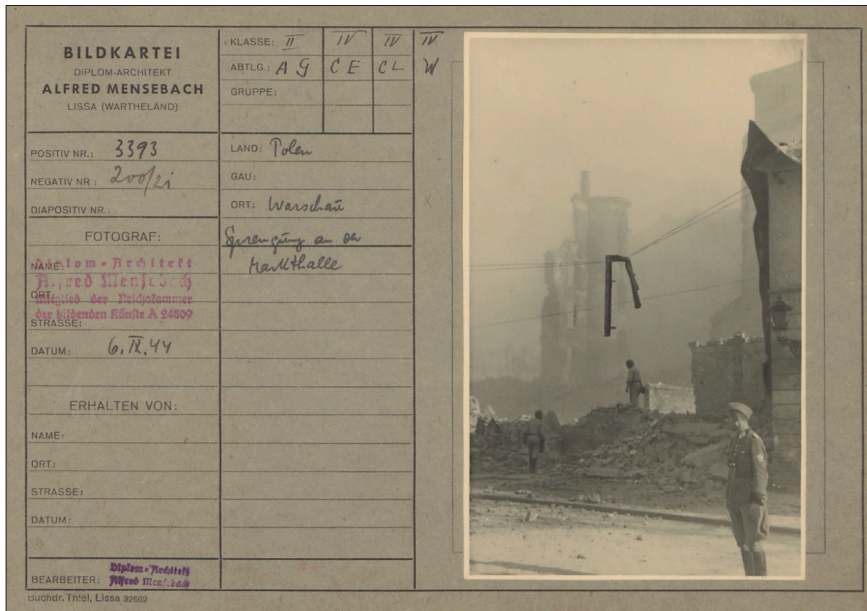 BILDKARTEI
DIPLOM-ARCHITEKT
ALFRED MENSEBACH
LISSA (WARTHELAND)
KLASSE: II IV IV IV
ABTLG.: A G C E C L W
GRUPPE:
POSITIV NR.: 3393
NEGATIV NR.: 200/21
DIAPOSITIV NR.:
LAND: Polen
GAU:
ORT: Warschau
Sprengung an der
Markthalle
FOTOGRAF:
NAME:
Diplom-Architekt
Alfred Mensebach
ORT:
Mitglied der Reichskammer
der bildenden Künste A 24609
STRASSE:
DATUM: 6.IX.44
ERHALTEN VON:
NAME:
ORT:
STRASSE:
DATUM:
BEARBEITER: Diplom-Architekt
Alfred Mensebach
Buchdr. Thiel, Lissa 32662